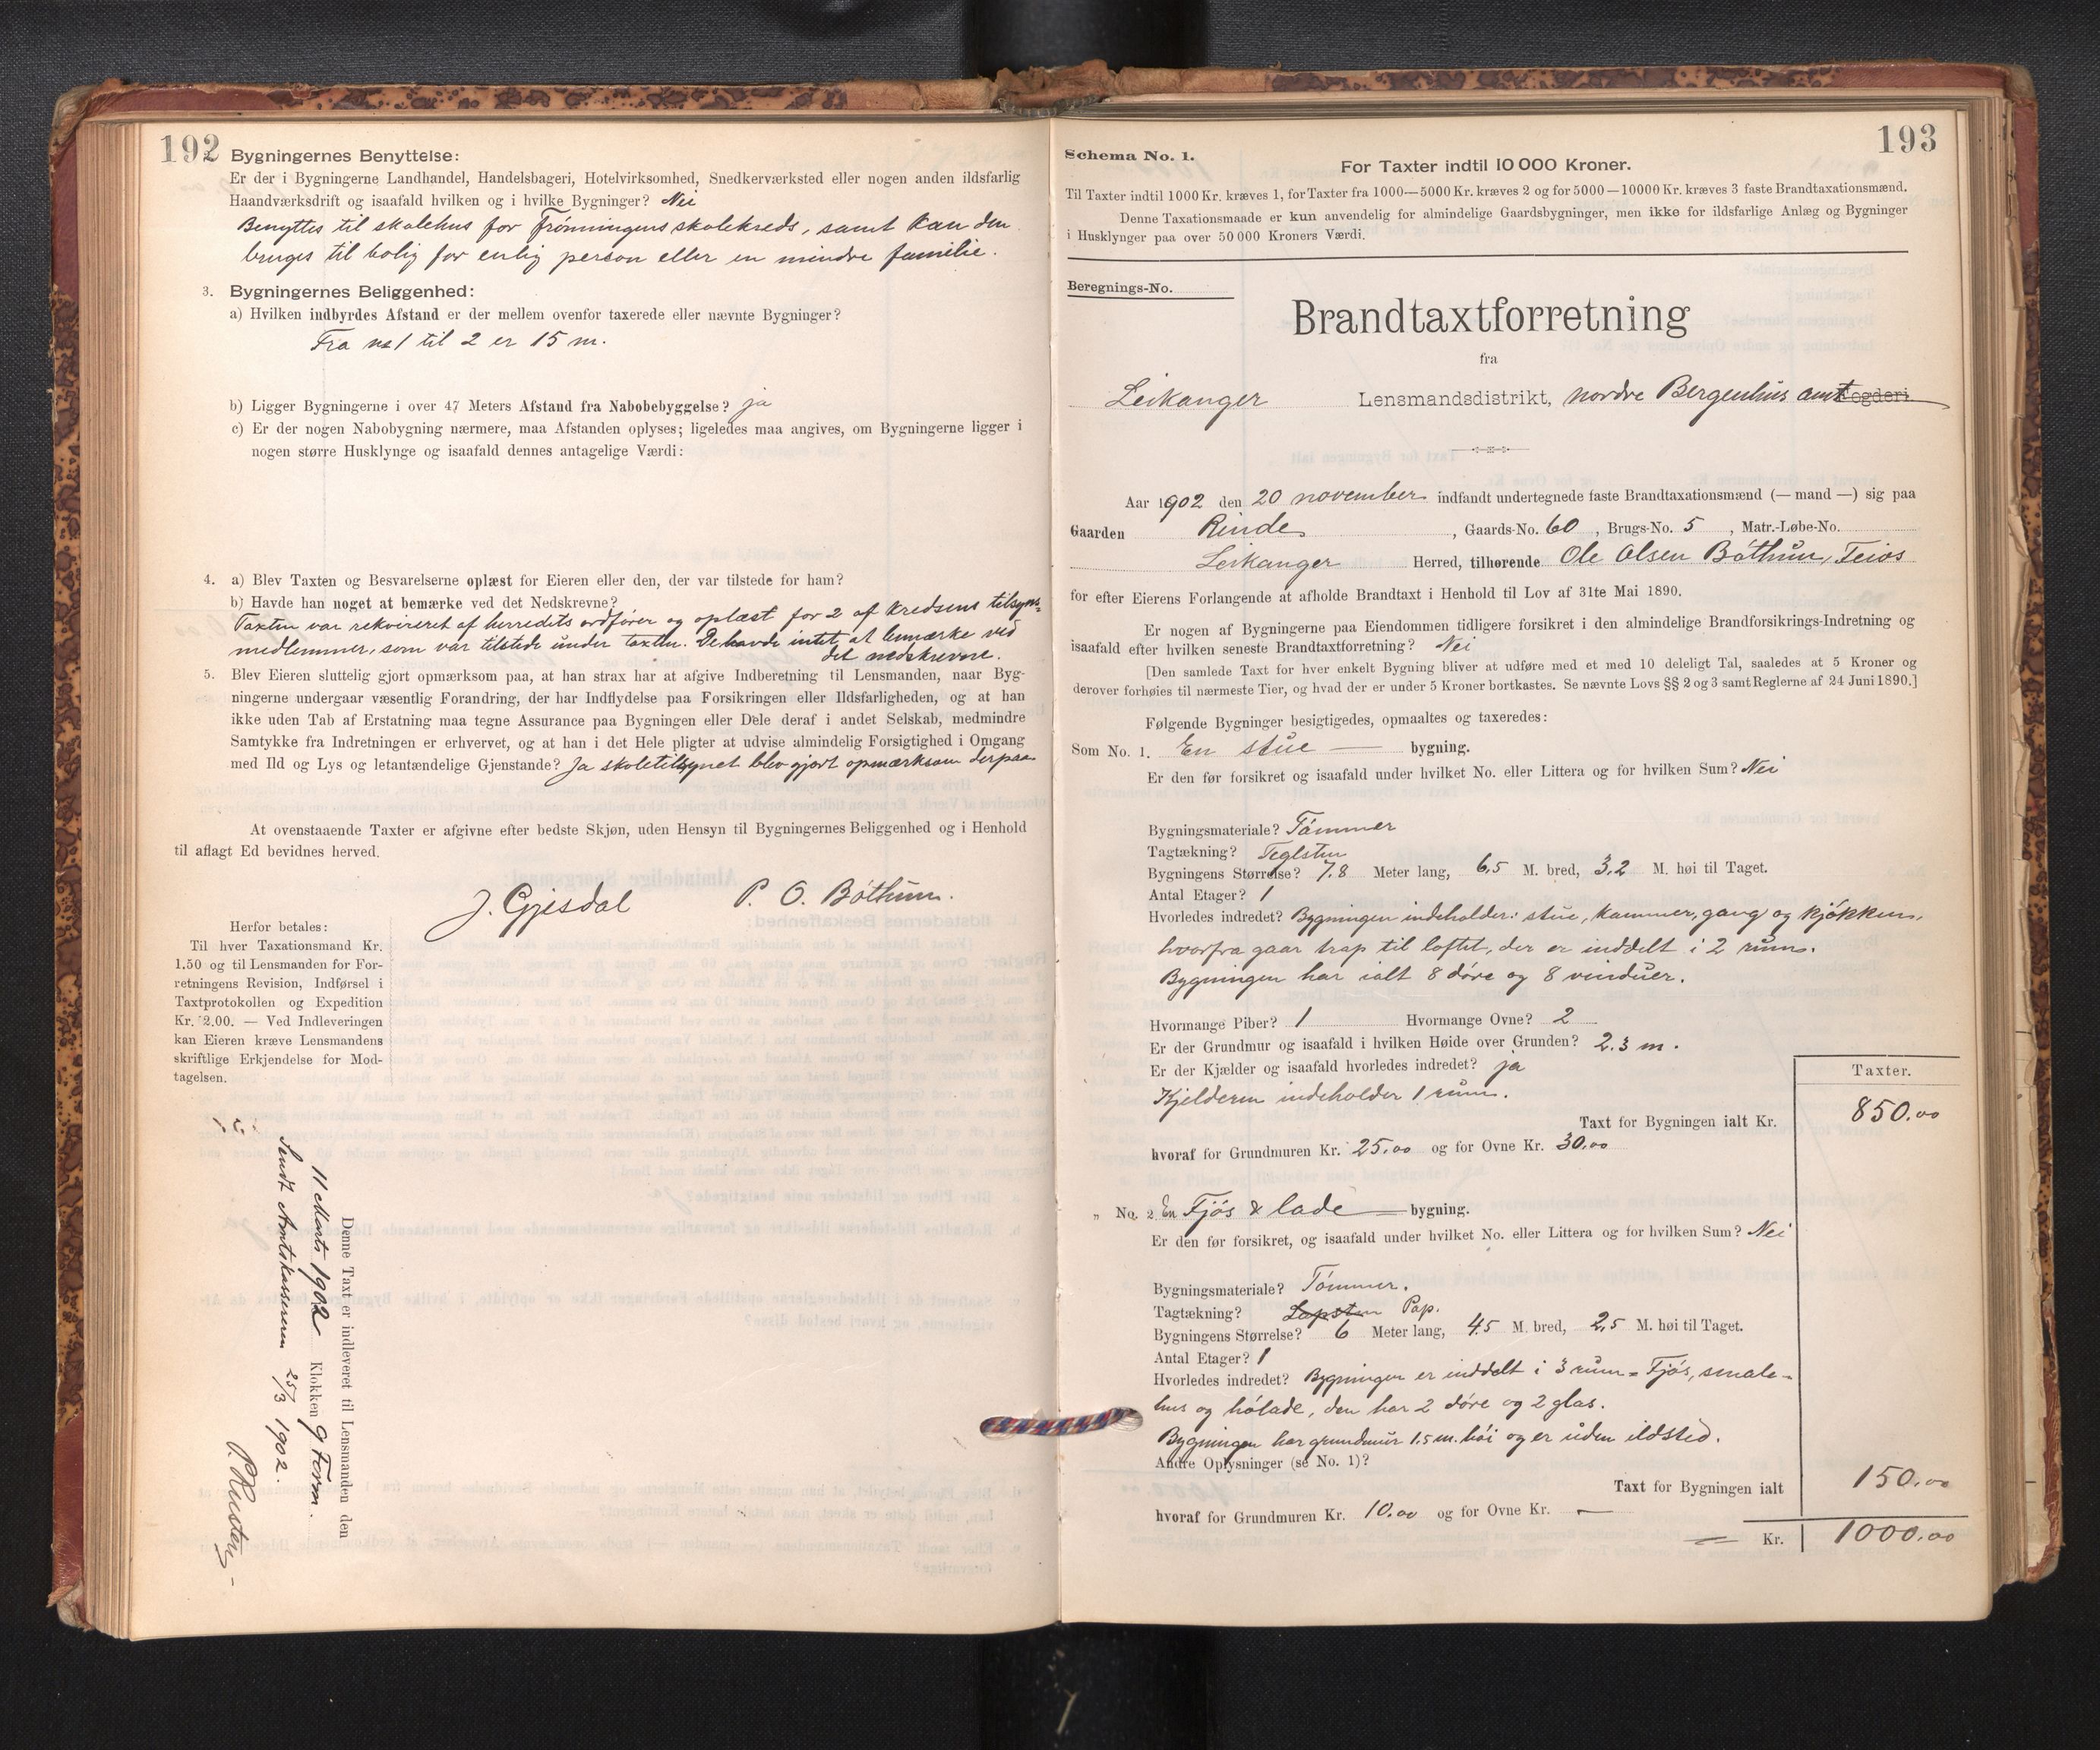 192
Bygningernes Benyttelse:
Er der i Bygningerne Landhandel, Handelsbageri, Hotelvirksomhed, Snedkerværksted eller nogen anden ildsfarlig
Haandværksdrift og isaafald hvilken og i hvilke Bygninger? Nei
Benyttes til skolehus for Frønningens skolekreds, samt kan den
bruges til bolig for enlig person eller en mindre familie.
3. Bygningernes Beliggenhed:
a) Hvilken indbyrdes Afstand er der mellem ovenfor taxerede eller nævnte Bygninger?
Fra no 1 til 2 er 15 m.
b) Ligger Bygningerne i over 47 Meters Afstand fra Nabobebyggelse? ja
c) Er der nogen Nabobygning nærmere, maa Afstanden oplyses; ligeledes maa angives, om Bygningerne ligger i
nogen større Husklynge og isaafald dennes antagelige Værdi:
4. a) Blev Taxten og Besvarelserne oplæst for Eieren eller den, der var tilstede for ham?
b) Havde han noget at bemærke ved det Nedskrevne?
Taxten var rekvireret af herredets ordfører og oplæst for 2 af kredsens tilsyns-
medlemmer, som var tilstede under taxten. De havde intet at bemærke ved
det nedskrevne.
5. Blev Eieren sluttelig gjort opmærksom paa, at han strax har at afgive Indberetning til Lensmanden, naar Byg-
ningerne undergaar væsentlig Forandring, der har Indflydelse paa Forsikringen eller Ildsfarligheden, og at han
ikke uden Tab af Erstatning maa tegne Assurance paa Bygningen eller Dele deraf i andet Selskab, medmindre
Samtykke fra Indretningen er erhvervet, og at han i det Hele pligter at udvise almindelig Forsigtighed i Omgang
med Ild og Lys og letantændelige Gjenstande? Ja skoletilsynet blev gjort opmærksom derpaa
At ovenstaaende Taxter er afgivne efter bedste Skjøn, uden Hensyn til Bygningernes Beliggenhed og i Henhold
til aflagt Ed bevidnes herved.
J. Gjesdal P. O. Bóthun.
Herfor betales:
Til hver Taxationsmand Kr.
1.50 og til Lensmanden for For-
retningens Revision, Indførsel i
Taxtprotokollen og Expedition
Kr. 2.00. — Ved Indleveringen
kan Eieren kræve Lensmandens
skriftlige Erkjendelse for Mod-
tagelsen.
Denne Taxt er indleveret til Lensmanden den
11 Marts 1902 Klokken 9 Form.
Sendt Amtskassereren 25/3 1902.
193
Schema No. 1.
For Taxter indtil 10 000 Kroner.
Til Taxter indtil 1000 Kr. kræves 1, for Taxter fra 1000—5000 Kr. kræves 2 og for 5000—10000 Kr. kræves 3 faste Brandtaxationsmænd.
Denne Taxationsmaade er kun anvendelig for almindelige Gaardsbygninger, men ikke for ildsfarlige Anlæg og Bygninger
i Husklynger paa over 50 000 Kroners Værdi.
Beregnings-No.
Brandtaxtforretning
fra
Leikanger Lensmandsdistrikt, nordre Bergenhus amt Fogderi
Aar 1902 den 20 november indfandt undertegnede faste Brandtaxationsmænd (— mand —) sig paa
Gaarden Rinde, Gaards-No. 60, Brugs-No. 5, Matr.-Løbe-No.
Leikanger Herred, tilhørende Ole Olsen Bóthun, Feios
for efter Eierens Forlangende at afholde Brandtaxt i Henhold til Lov af 31te Mai 1890.
Er nogen af Bygningerne paa Eiendommen tidligere forsikret i den almindelige Brandforsikrings-Indretning og
isaafald efter hvilken seneste Brandtaxtforretning? Nei
[Den samlede Taxt for hver enkelt Bygning bliver at udføre med et med 10 deleligt Tal, saaledes at 5 Kroner og
derover forhøies til nærmeste Tier, og hvad der er under 5 Kroner bortkastes. Se nævnte Lovs §§ 2 og 3 samt Reglerne af 24 Juni 1890.]
Følgende Bygninger besigtigedes, opmaaltes og taxeredes:
Som No. 1. En stue — bygning.
Er den før forsikret og isaafald under hvilket No. eller Littera og for hvilken Sum? Nei
Bygningsmateriale? Tómmer
Tagtækning? Teglsten
Bygningens Størrelse? 7.8 Meter lang, 6,5 M. bred, 3,2 M. høi til Taget.
Antal Etager? 1
Hvorledes indredet? Bygningen indeholder: stue, kammer, gang og kjókken,
hvorfra gaar trap til loftet, der er inddelt i 2 rum.
Bygningen har ialt 8 dóre og 8 vinduer.
Hvormange Piber? 1 Hvormange Ovne? 2
Er der Grundmur og isaafald i hvilken Høide over Grunden? 2.3 m.
Er der Kjælder og isaafald hvorledes indredet? ja
Kjelderen indeholder 1 rum.
Taxter.
Taxt for Bygningen ialt Kr. 850.00
hvoraf for Grundmuren Kr. 25.00 og for Ovne Kr. 30.00
„ No. 2 En Fjós & lade — bygning.
Er den før forsikret, og isaafald under hvilket No. eller Littera og for hvilken Sum? Nei
Bygningsmateriale? Tómmer.
Tagtækning? Pap.
Bygningens Størrelse? 6 Meter lang, 4.5 M. bred, 2,5 M. høi til Taget.
Antal Etager? 1
Hvorledes indredet? Bygningen er inddelt i 3 rum = Fjós, smale-
hus og hólade, den har 2 dóre og 2 glas.
Bygningen har grundmur 1.5 m. hói og er uden ildsted.
Andre Oplysninger (se No. 1)?
Taxt for Bygningen ialt 150.00
hvoraf for Grundmuren Kr. 10.00 og for Ovne Kr. —
Kr. 1000.00